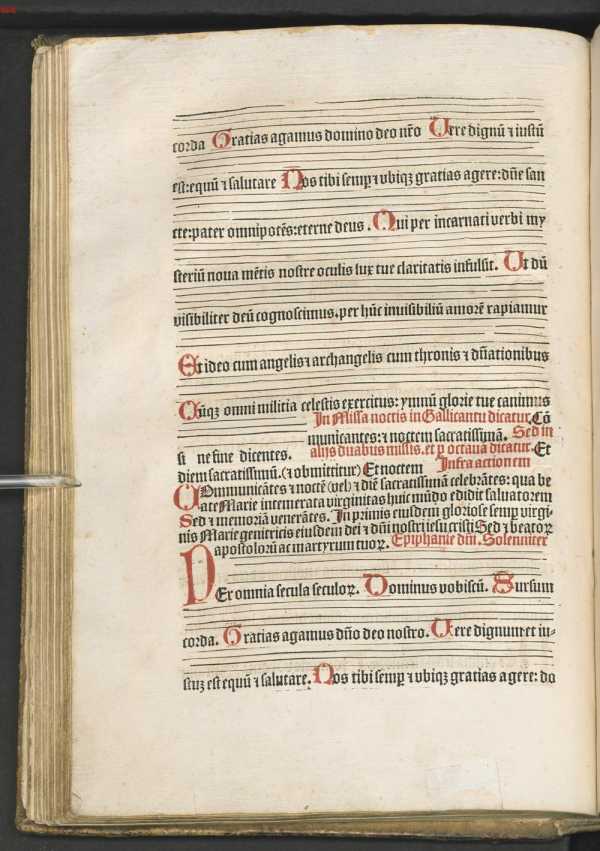 corda Gratias agamus domino deo nr̄o Vere dignū ⁊ iustū
est:equū ⁊ salutare Nos tibi semꝑ ⁊ vbiqꝫ gratias agere:dn̄e san
cte:pater omnipotēs:eterne deus. Qui per incarnati verbi my
steriū noua mētis nostre oculis lux tue claritatis infulsit. Ut dū
visibiliter deū cognoscimus.per hūc inuisibiliū amorē rapiamur
Et ideo cum angelis ⁊ archangelis cum thronis ⁊ dn̄ationibus
Cūqꝫ omni militia celestis exercitus: ymnū glorie tue canimus
In Missa noctis in Gallicantu dicatur. Cō
municantes: ⁊ noctem sacratissimā. Sed in
si ne fine dicentes. alijs duabus missis. et ꝑ octaua dicatur. Et
diem sacratissimū. (⁊ obmittitur) Et noctem Infra actionem
COmmunicātes ⁊ noctē (vel) ⁊ diē sacratissimū celebrātes: qua be
ate Marie intemerata virginitas huic mūdo edidit saluatorem
Sed ⁊ memoriā venerātes. In primis eiusdem gloriose semꝑ virgi
nis Marie genitricis eiusdem dei ⁊ dn̄i nostri iesu cristi Sed ⁊ beatoꝝ
apostoloꝝ ac martyrum tuoꝝ. Epiphanie dn̄i. Solenniter
PEr omnia secula seculoꝝ. Dominus vobiscū. Sursum
corda. Gratias agamus dn̄o deo nostro. Vere dignum et iu-
stuꝫ est equū ⁊ salutare. Nos tibi semꝑ ⁊ vbiqꝫ gratias agere: do